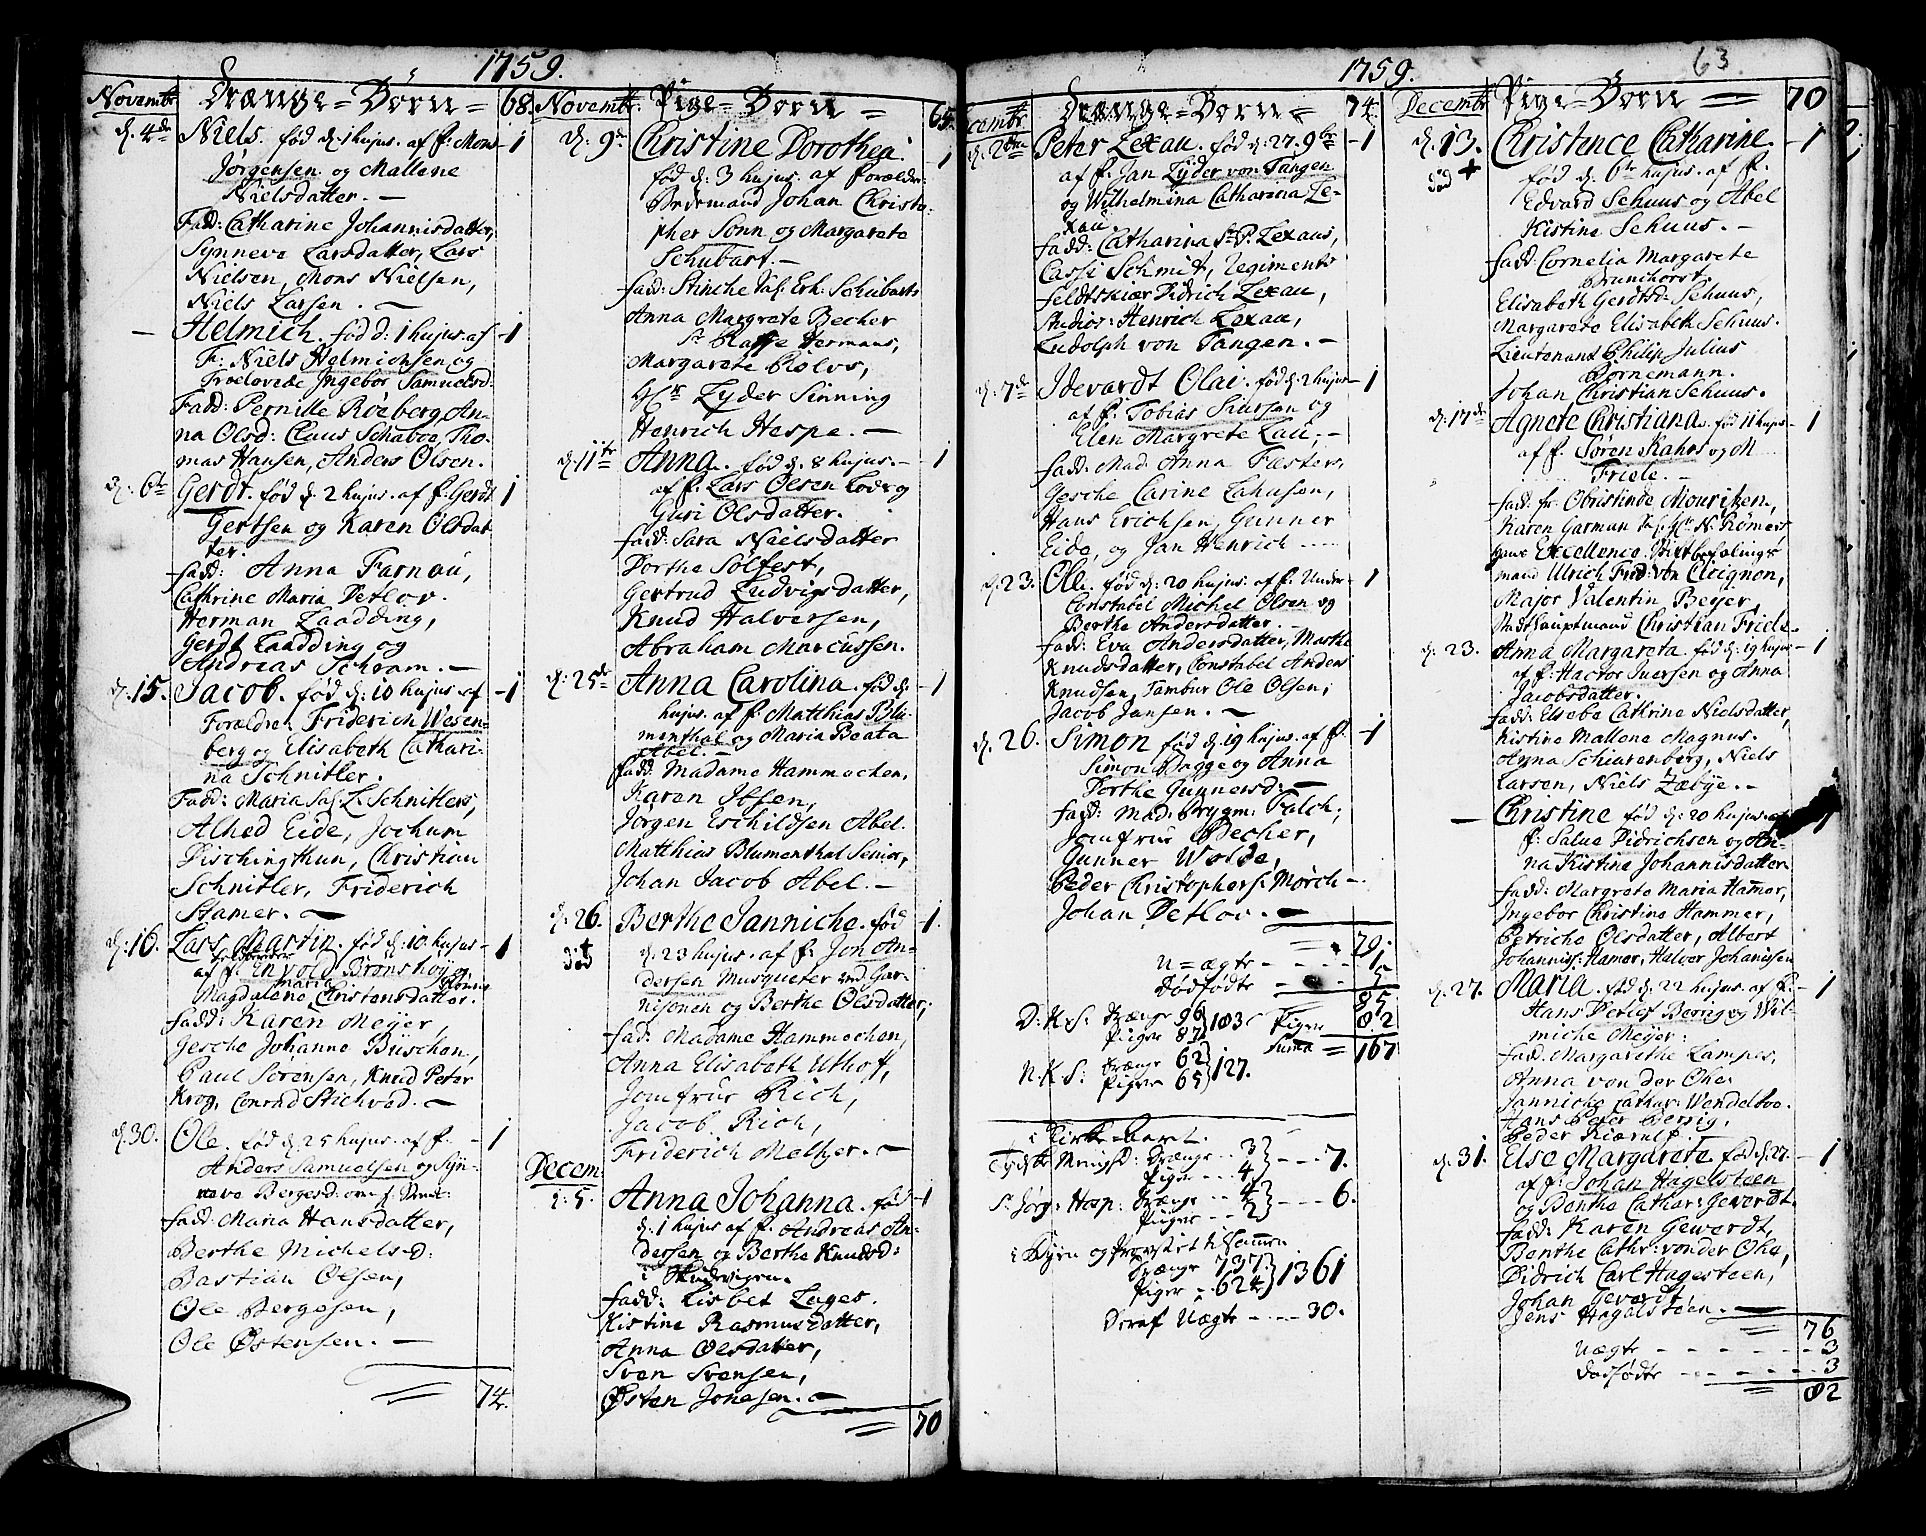 1759.
Novembr Drænge=Börn= 68.
d. 4de Niels. fød d. 1 hujus. af f. Mons -1
Jørgensen og Mallene
Nielsdatter. —
Fadd: Catharine Johannisdatter,
Synneve Larsdatter, Lars
Nielsen, Mons Nielsen,
Niels Larsen. —
— Helmich. fød d: 1 hujus. af -1
F: Niels Helmichsen og
Troelovede Ingebor Samuelsd.
Fadd: Pernille Rozberg, An-
na Olsd: Claus Schaboe, Tho-
mas Hansen, Anders Olsen.
d. 6te Gerdt. fød d. 2 hujus. af f. Gerdt 1
Gertsen og Karen Olsdat-
ter.
fadd: Anna Farnau,
Cathrine Maria Detlov.
Herman Laadding,
Gerdt Laadding og
Andreas Schram. —
d. 15. Jacob. fød d: 10 hujus. af -1
Forældre Friderich Wesen-
berg og Elisabeth Cathari-
na Schnitler.
Fadd: Maria Sal. L. Schnitlers,
Alhed Eide, Jochum
Dischingthun, Christian
Schnitler, Friderich
Stamer. —
d. 16. Lars Martin. fød d: 10 hujus - 1
af f. Envold Brønshøy og
Magdalene Maria Christensdatter.
fadd: Karen Meyer,
Gesche Johanne Büschen,
Paul Sørensen, Knud Peter
Krog, Conrad Stichvod. —
d. 30. Ole. fød d: 25 hujus. af f. - 1
Anders Samuelsen og Syn-
neve Bergesd:
fadd: Maria Hansdatter,
Berthe Michels-d:
Bastian Olsen,
Ole Bergesen,
Ole Østensen. —
74.
Novembr. Pige=Börn = 65.
d. 9de Christine Dorothea. -1
fød d: 3 hujus. af Forældre
Bedemand Johan Christo-
pher Sonn og Margarete
Schubart. —
fadd: Stinche Sal. Erh: Schubarts
Anna Margrete Becher
Sr Claffe Hermans,
Margarete Rolvs,
Hr Lyder Sinning
Henrich Hespe. —
d. 11te Anna. fød d. 8 hujus. - 1
af f. Lars Olsen Lods og
Guri Olsdatter.
fadd: Sara Nielsdatter
Dorthe Solfest,
Gertrud Ludvigsdatter,
Knud Halversen,
Abraham Marcussen.
d: 25de Anna Carolina. fød d: -1
hujus. af f. Matthias Blu-
menthal og Maria Beata
Abel. —
fadd: Madame Hammechen,
Karen Ibsen,
Jørgen Eschildsen Abel.
Matthias Blumenthal Senior,
Johan Jacob Abel. —
d. 26. Berthe Janniche. fød -1.
død d. 23 hujus. af f. Jon An-
dersen Musqueter ved Gar-
nisonen og Berthe Olsdatter;
fad: Madame Hammechen,
Anna Elisabeth Uthoff,
Jomfrue Rich,
Jacob Rich,
Friderich Meltzer. —
Decem
d: 5. Anna Johanna. fød -1
d. 1 hujus af f. Andreas An-
dersen og Berthe Knudsd:
i Skudevigen.
fadd: Lisbet Luges.
Kistine Rasmusdatter,
Anna Olsdatter,
Sven Svensen,
Østen Jonesen. —
70
1759. 63
Drænge=Börn = 74.
d. 2den Peter Lexau. fød d: 27. 9br -1
af f. Jan Lyder von Tangen
og Wilhelmina Catharina Le-
xau.
fadd: Catharina Sr P: Lexaus,
Cassi Schmit, Regiments
feldtskiær Didrich Lexau,
Studios: Henrich Lexau,
Ludolph von Tangen. —
d. 7de Idevardt Olai. fød d: 2 hujus - 1
af f. Tobias Siursen og
Elen Margrete Lau; —
fadd: Mad. Anna Fasters,
Gesche Carine Lahusen,
Hans Erichsen, Gunner
Eide, og Jan Henrich ....
d. 23. Ole. fød d: 20 hujus. af f. Under- -1
Constabel Michel Olsen og
Berthe Andersdatter.
fadd: Eva Andersdatter, Marthe
Knudsdatter, Constabel Anders
Knudsen, Tambur Ole Olsen;
Jacob Jansen. —
d. 26. Simon fød d. 19 hujus. af f. -1
Simon Bagge og Anna
Dorthe Gunnersd: —
fadd: Mad. Brygm: Falch;
Jomfrue Becher,
Gunner Wolde,
Peder Christophers: Mørch -
Johan Detlov. —
79.
U=ægte - - - 1
Dødfødte - - 5
85
D: K. S: Drænge 96 } 183
Piger 87
Piger 82
Suma = 167
N. K. S: Drænge 62 } 127.
Piger 65
Tydske Menigh: Drænge .. 3 } --- 7.
Piger .. 4
St Jørg: Hosp: Drænge .. 4 } --- 6.
Piger .. 2
i Byen og Provstiet til Sammen
Drænge 737. } 1361
Piger .. 624
Deraf Uægte --- 30.
Decembr Pige=Börn = 70
d. 13. Christence Catharine. -1
død + fød d. 6te hujus. af f.
Edvard Schuus og Abel
Kistine Schuus. —
fadd: Cornelia Margarete
Brunchorst.
Elisabeth Gerdtsd: Schuus,
Margarete Elisabeth Schuus.
Lieutenant Philip Julius
Bornemann.
Johan Christian Schuus.
d. 17de Agnete Christiana. fød 11 hujus - 1
af f. Søren Rahrs og M
Friele. —
fadd: fr: Obristinde Mouritzen,
Karen Garman Sal. Hr N: Rømers
hans Excellence Stiftbefalings-
mand Ulrich Frid: von Cicignon,
Major Valentin Beyer,
Stadthauptmand Christian Friele.
d. 23. Anna Margareta. fød d: 19 hujus -1
af f. Hactor Iversen og Anna
Jacobsdatter.
fadd: Elsebe Cathrine Nielsdatter,
Kistine Mallene Magnus.
Anna Schiarenberg, Niels
Larsen, Niels Zæbye. —
— Christine fød d: 20 hujus. af 1
f. Salve Didrichsen og An-
na Kistine Johannisdatter
fadd: Margrete Maria Hamer,
Ingebor Christine Hammer,
Petriche Olsdatter, Albert
Johanniss: Hamer, Halver Johannisen
d. 27. Maria. fød d: 22 hujus. af f. -1
Hans Detlef Berrig og Wil-
miche Meyer:
fadd: Margarethe Lampes,
Anna von der Ohe.
Janniche Cathar: Wendelboe.
Hans Peter Berrig,
Peder Kiærulf. —
d. 31. Else Margarete fød d: 27. - 1
af f. Johan Hagelsteen
og Benthe Cathar: Gewerdt.
fadd: Karen Gewerdt,
Benthe Cathr: von der Ohe,
Didrich Carl Hagesteen,
Johan Gevardt
Jens Hagelsteen. —
76
Uægte - - - - 3
Dødfødte - - - 3
82